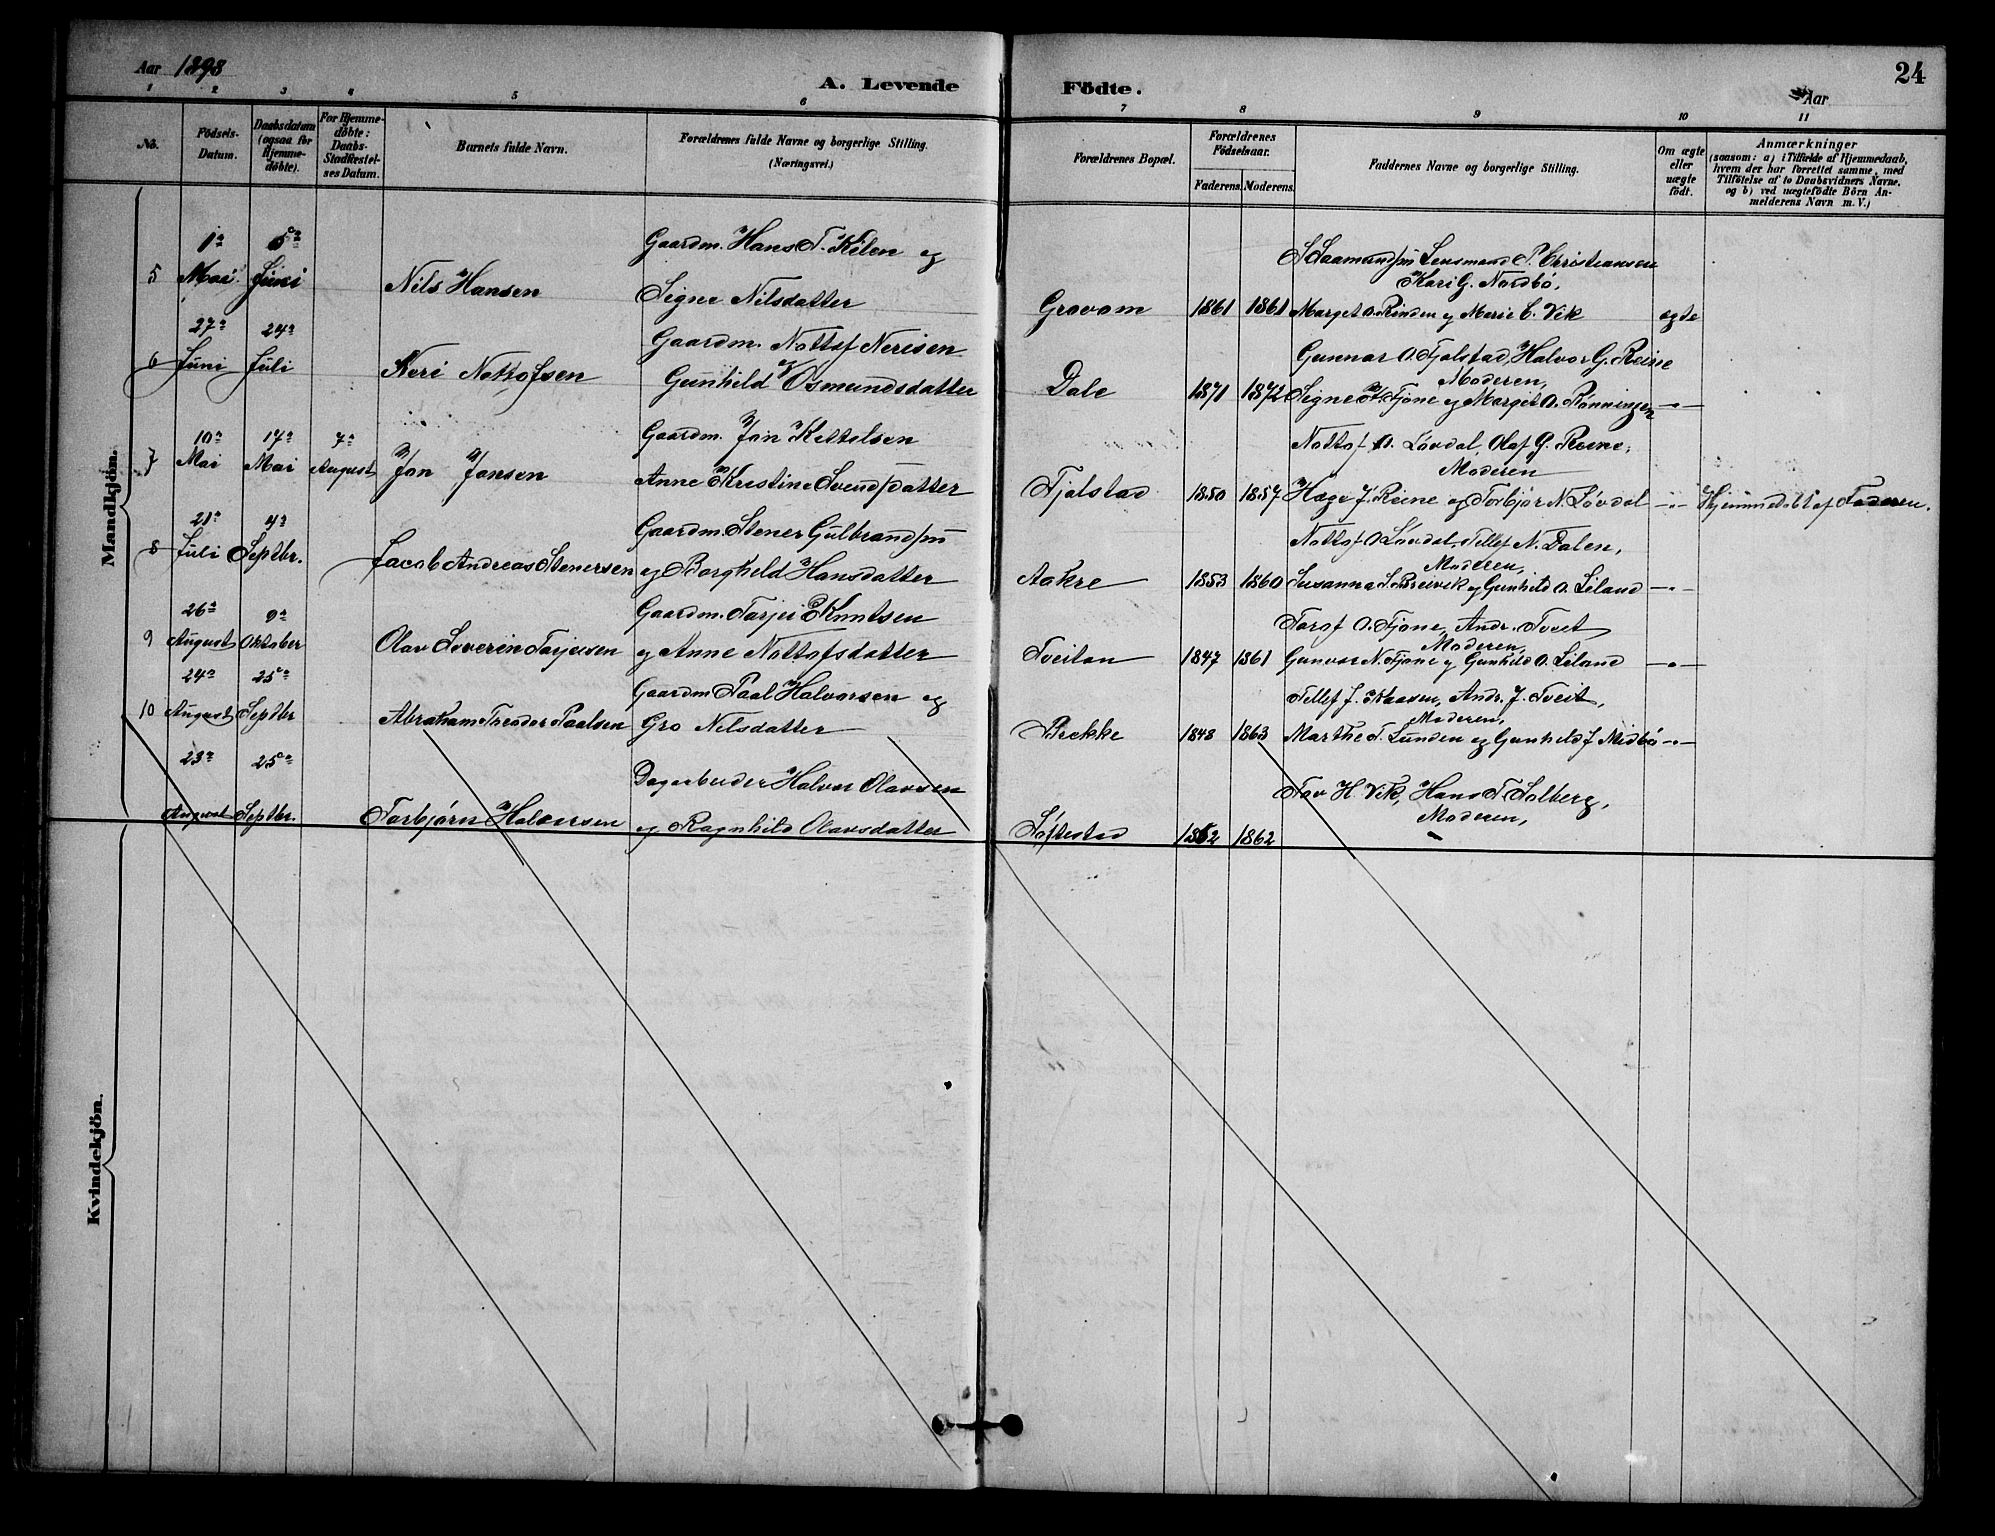 Aar 1898
A. Levende Födte.
24
Aar
1 2 3 4 5 6 7 8 9 10 11
No.
Födsels-Datum.
Daabsdatum (ogsaa for Hjemme-döbte).
For Hjemme-döbte: Daabs-Stadfæstel-ses Datum.
Barnets fulde Navn.
Forældrenes fulde Navne og borgerlige Stilling.
(Næringsvei.)
Forældrenes Bopæl.
Forældrenes Födselsaar.
Faderens. Moderens.
Faddernes Navne og borgerlige Stilling.
Om ægte eller uægte födt.
Anmærkninger
(saasom: a) i Tilfælde af Hjemmedaab,
hvem der har forrettet samme, med
Tilföielse af to Daabsvidners Navne,
og b) ved uægtefödte Börn An-
melderens Navn m. V.)
Mandkjön.
5 1ª Mai 5ª Juni Nils Hansen
Gaardm. Hans T. Kilen og
Signe Nilsdatter
Grovom 1861 1861
Lensmand P. Christiansen
Kari G. Nordbö,
Marget O. Rinden og Marie E. Vik
ægte
6 27ª Juni 24ª Juli Neri Nottofsen
Gaardm. Nottof Nerisen
og
Gunhild Osmundsdatter
Dale 1871 1872
Gunnar O. Fjolstad, Halvor G. Reine
Moderen,
Signe Fjone og Margit O. Rönningen
-"-
7 10ª Mai 17ª Mai 7ª August Jon Jonsen
Gaardm. Jon Kettelsen
Anne Kristine Svendsdatter
Fjolstad 1850 1857
Nottof O. Lövdal, Olaf G. Reine,
Moderen
Hæge J. Reine og Torbjör N. Lövdal
-"- Hjemmedöbt af Faderen.
8 21ª Juli 4ª Septbr. Jacob Andreas Stenersen
Gaardm. Stener Gulbrandsen
og Borghild Hansdatter
Aakre 1853 1860
Nottof O. Lövdal, Tellef N. Dalen,
Moderen,
Susanna S. Breivik og Gunhild O. Liland
-"-
9 26ª August 9ª Oktober Olav Severin Tarjeisen
Gaardm. Tarjei Knutsen
og Anne Nottofsdatter
Tveitan 1847 1861
Toraf O. Fjone, Andr. Tveit
Moderen,
Gunvor N. Fjone og Gunhild O. Liland
-"-
10 24ª August 25ª Septbr Abraham Theodor Paalsen
Gaardm. Paal Halvorsen og
Gro Nilsdatter
Brekke 1848 1863
Tellef J. Kaasen, Andr. J. Tveit,
Moderen,
Marthe T. Lunden og Gunhild J. Midbö
-"-
23ª August 25ª Septbr. Torbjörn Halvorsen
Dagarbeider Halvor Olavsen
og Ragnhild Olavsdatter
Söftestad 1862 1862
Tov H. Vik, Hans T. Solberg,
Moderen,
Kvindekjön.